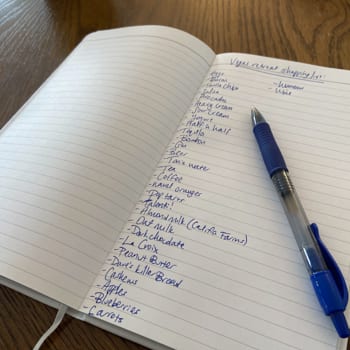 Vegas retreat shopping list:
- Eggs
- Bacon
- Tortilla chips
- Salsa
- Avocados
- Ice cream
- Sour cream
- Half n half
- Tequila
- Bourbon
- Gin
- Beer
- Tonic water
- Tea
- Coffee
- navel oranges
- Pop tarts
- Talenti!
- Almond milk (Califia Farms)
- Oat milk
- Dark chocolate
- La Croix
- Peanut Butter
- Dave's Killer Bread
- Cashews
- Apples
- Blueberries
- Carrots